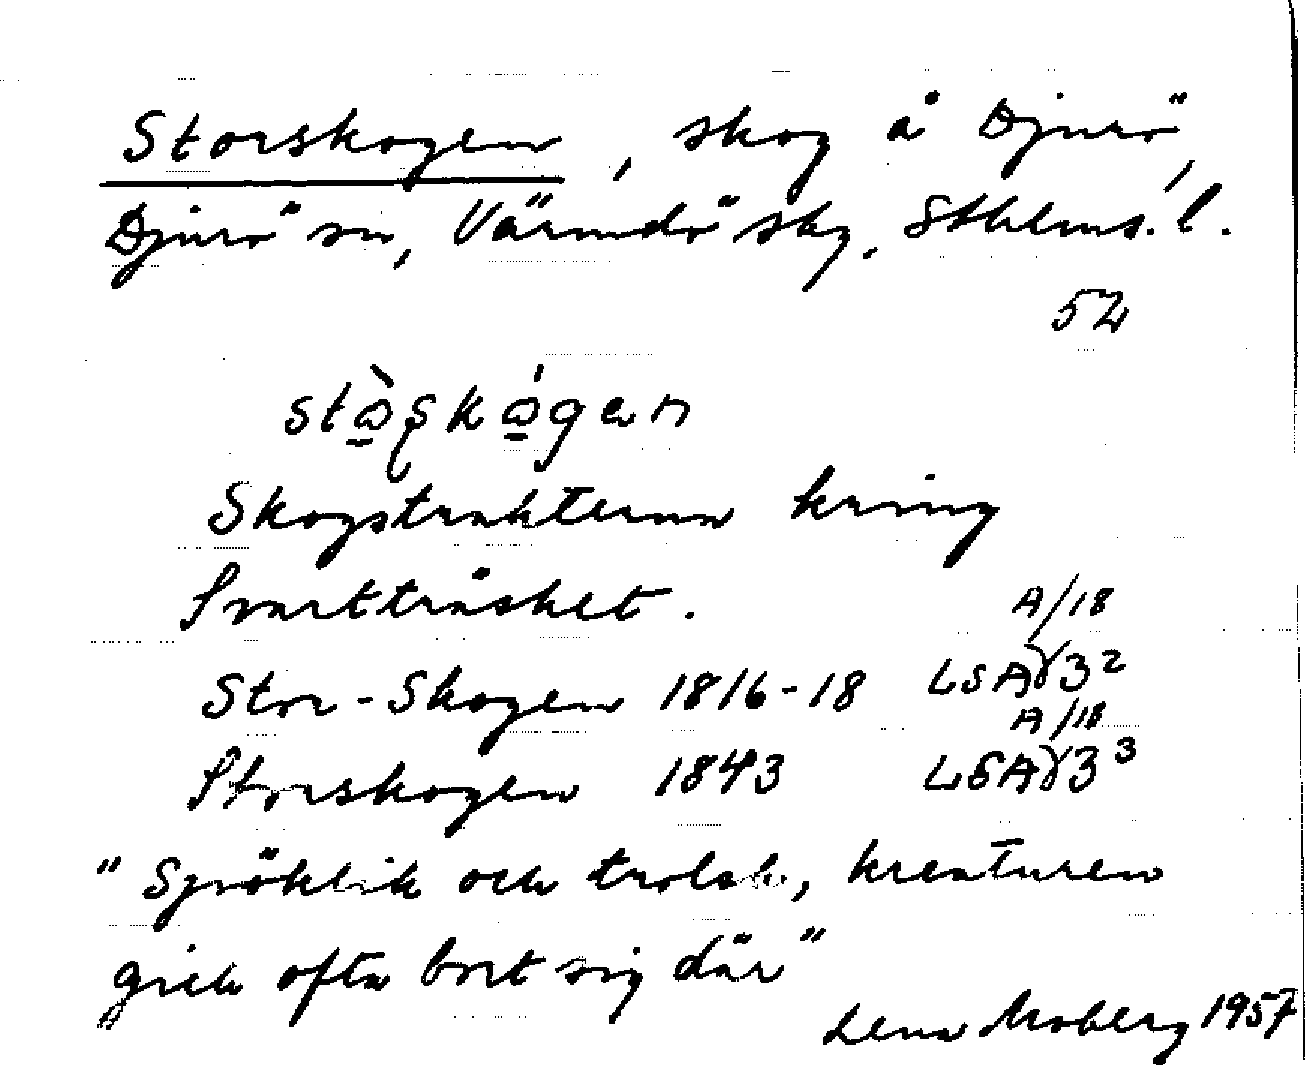 Storskogen, skog å Djurö,
Djurö sn, Värmdö skg. Sthlms. l.
52
Skogstrakterna kring
Svartträsket.
A/18
Stor-Skogen 1816-18 LSAɣ3²
A/18
Storskogen 1843 LSAɣ3³
"Spöklik och trolsk, kreaturen
gick ofta bort sig där"
Lena Moberg 1957